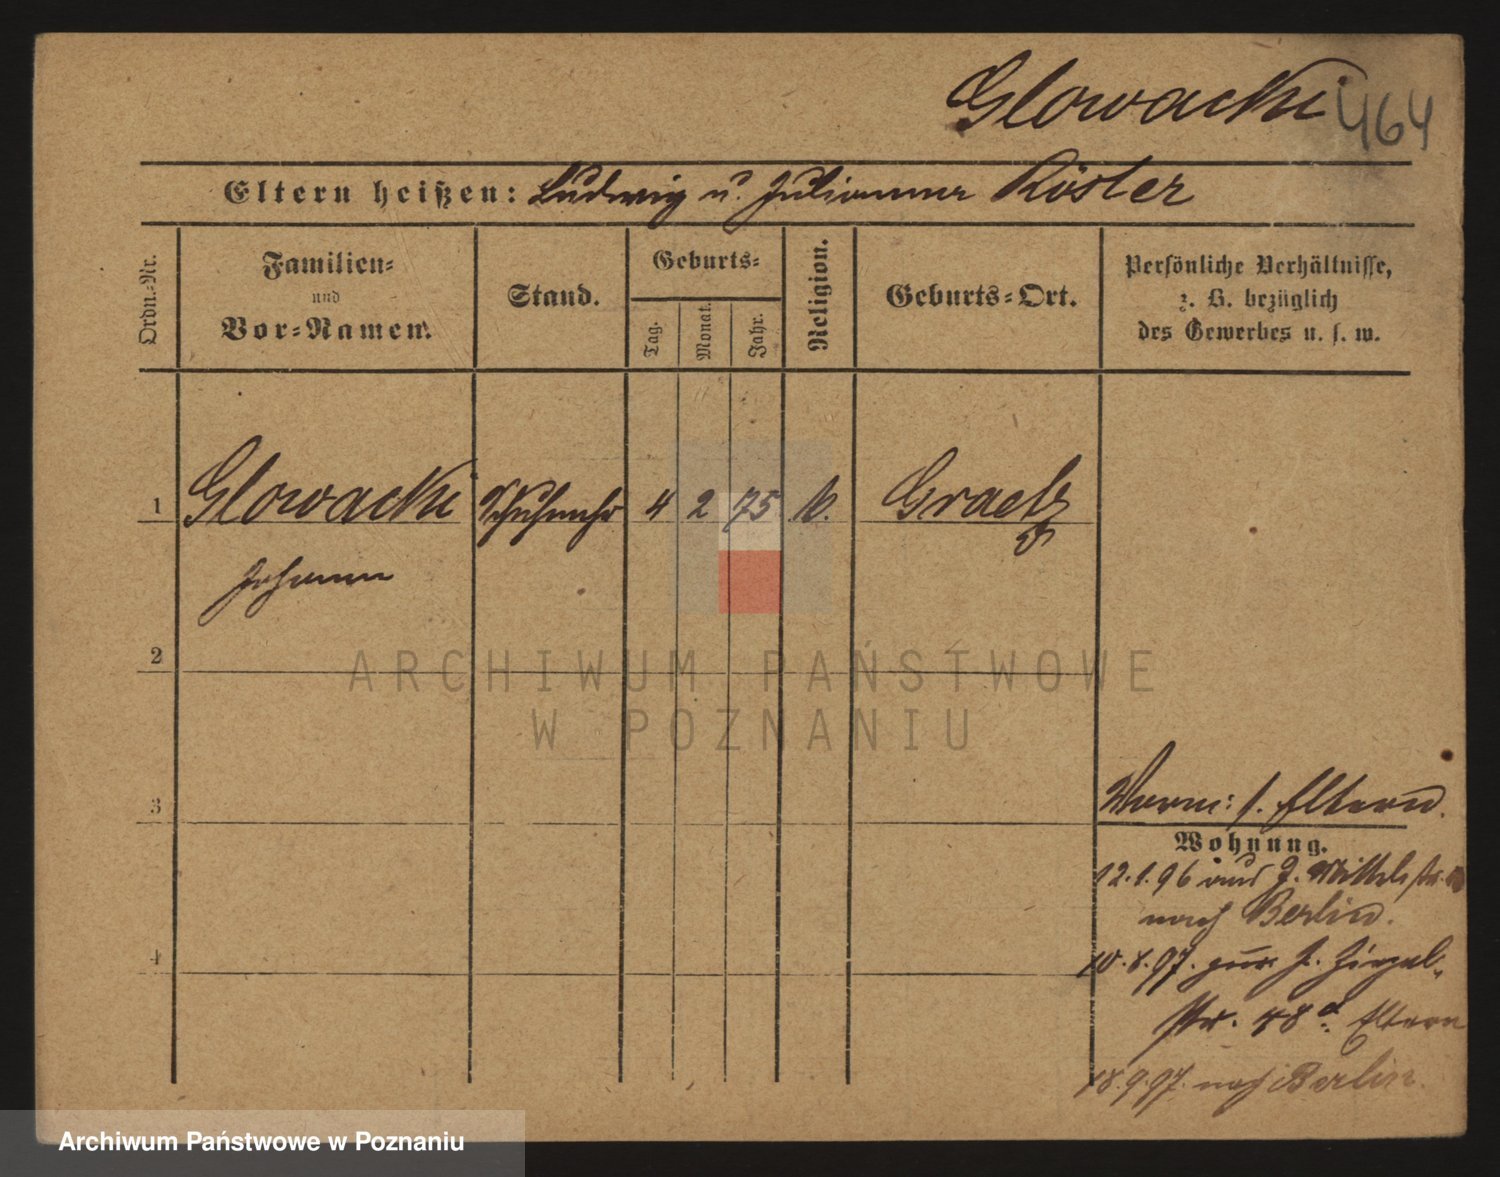 Glowacki 464
Eltern heißen: Ludwig u. Julianna Köster
Ordn.-Nr.
Familien-
und
Vor-Namen.
Stand.
Geburts-
Tag.
Monat.
Jahr.
Religion.
Geburts-Ort.
Persönliche Verhältnisse,
z. B. bezüglich
des Gewerbes u. s. w.
1 Glowacki 4 2 75 k. Graetz
Johann
2
3
4
ARCHIWUM PAŃSTWOWE
W POZNANIU
Eltern.
Wohnung.
12.1.96 aus J. Mittelstr.
nach Berlin.
10.8.97. J. Ziegel-
str. 48 Eltern
18.9.97. nach Berlin.
Archiwum Państwowe w Poznaniu